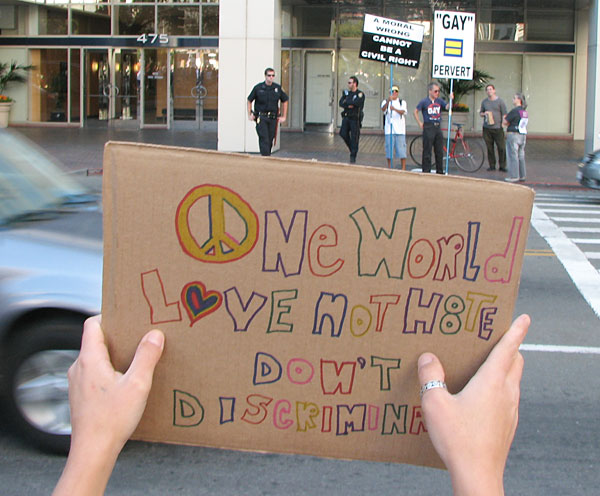 475
A MORAL
WRONG
CANNOT
BE A
CIVIL RIGHT
"GAY"
=
PERVERT
One World
LOVE NOT H8TE
DON'T
DISCRIMINA